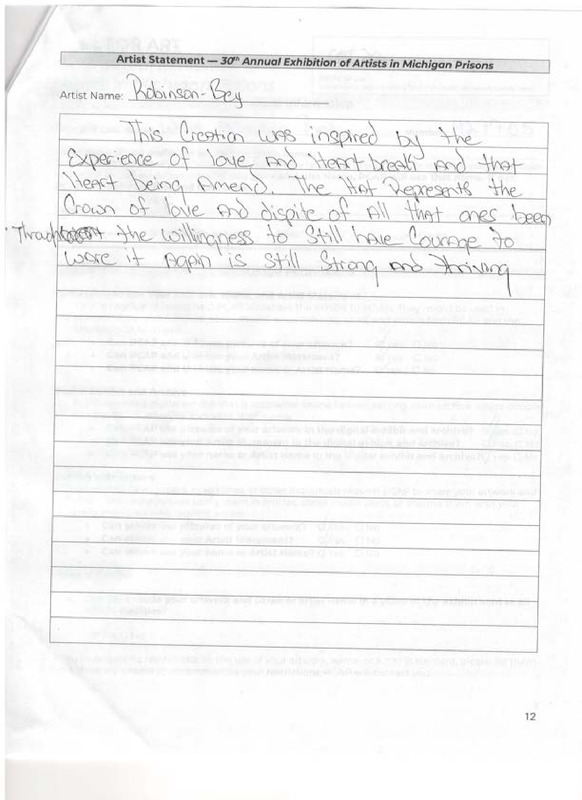 Artist Statement — 30th Annual Exhibition of Artists in Michigan Prisons
Artist Name: Robinson-Bey
This Creation was inspired by the
Experience of love and Heart break and that
Heart being Amend. The Hat Represents the
Crown of love and dispite of All that ones been
Through the willingness to Still have Courage to
wore it Again is still Strong and thriving
12